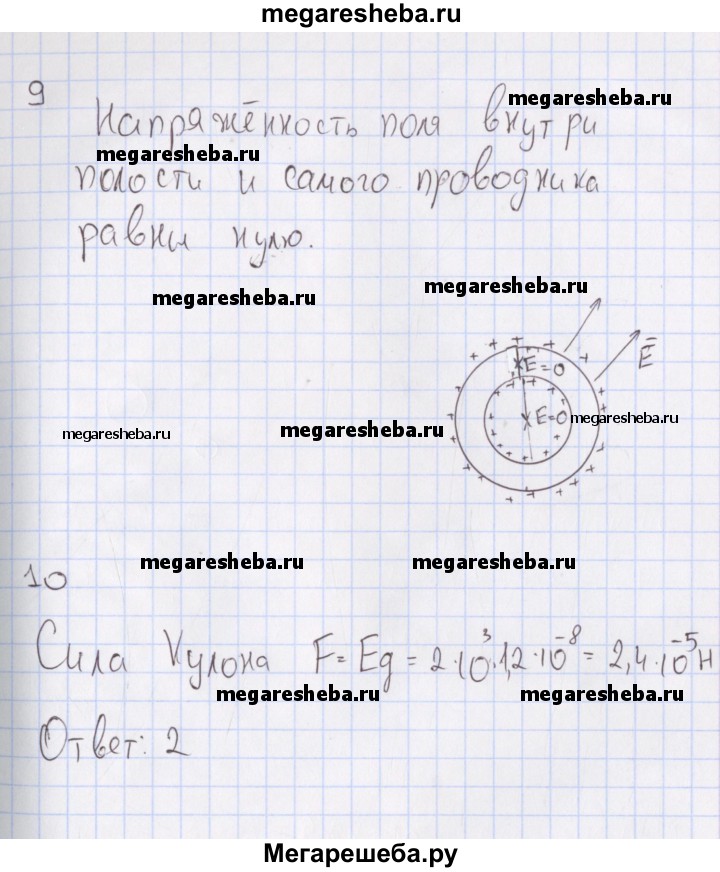 megaresheba.ru
9
megaresheba.ru
Напряжённость поля внутри
megaresheba.ru
полости и самого проводника
равны нулю.
megaresheba.ru
megaresheba.ru
E
E=0
E=0
megaresheba.ru
megaresheba.ru
megaresheba.ru
megaresheba.ru
megaresheba.ru
10
Сила Кулона F=Eq=2·10³·1,2·10⁻⁸=2,4·10⁻⁵Н
megaresheba.ru
megaresheba.ru
Ответ: 2
Мегарешеба.ру